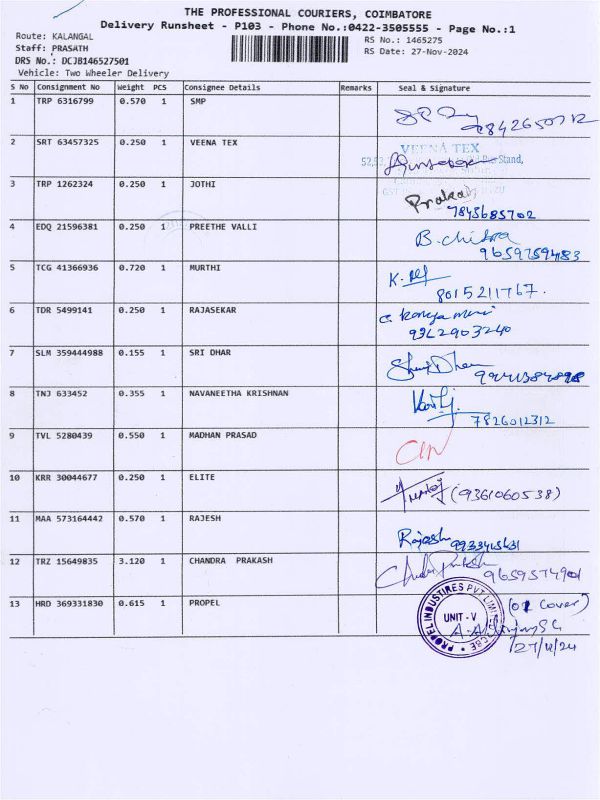 THE PROFESSIONAL COURIERS, COIMBATORE
Delivery Runsheet - P103 - Phone No.:0422-3505555 - Page No.:1
Route: KALANGAL
RS No.: 1465275
Staff: PRASATH
RS Date: 27-Nov-2024
DRS No.: DCJB146527501
Vehicle: Two Wheeler Delivery
S No Consignment No Weight PCS Consignee Details Remarks Seal & Signature
1 TRP 6316799 0.570 1 SMP
2 SRT 63457325 0.250 1 VEENA TEX
VEENA TEX
Stand,
3 TRP 1262324 0.250 1 JOTHI
Prakash
7845685702
4 EDQ 21596381 0.250 1 PREETHE VALLI
B. Chitra
5 TCG 41366936 0.720 1 MURTHI
8015211767.
6 TDR 5499141 0.250 1 RAJASEKAR
9362903240
7 SLM 359444988 0.155 1 SRI DHAR
8 TNJ 633452 0.355 1 NAVANEETHA KRISHNAN
7826012312
9 TVL 5280439 0.550 1 MADHAN PRASAD
10 KRR 30044677 0.250 1 ELITE
(9361060538)
11 MAA 573164442 0.570 1 RAJESH
Rajesh
12 TRZ 15649835 3.120 1 CHANDRA PRAKASH
9659574901
13 HRD 369331830 0.615 1 PROPEL
PROPEL INDUSTIRES PVT LIMITED
UNIT - V
(01 Cover)
27/11/24